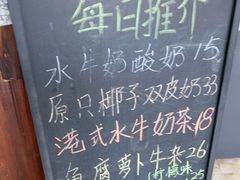 每日推介
水牛奶酸奶15
原只椰子双皮奶33
港式水牛奶茶18
鱼腐萝卜牛杂26
25